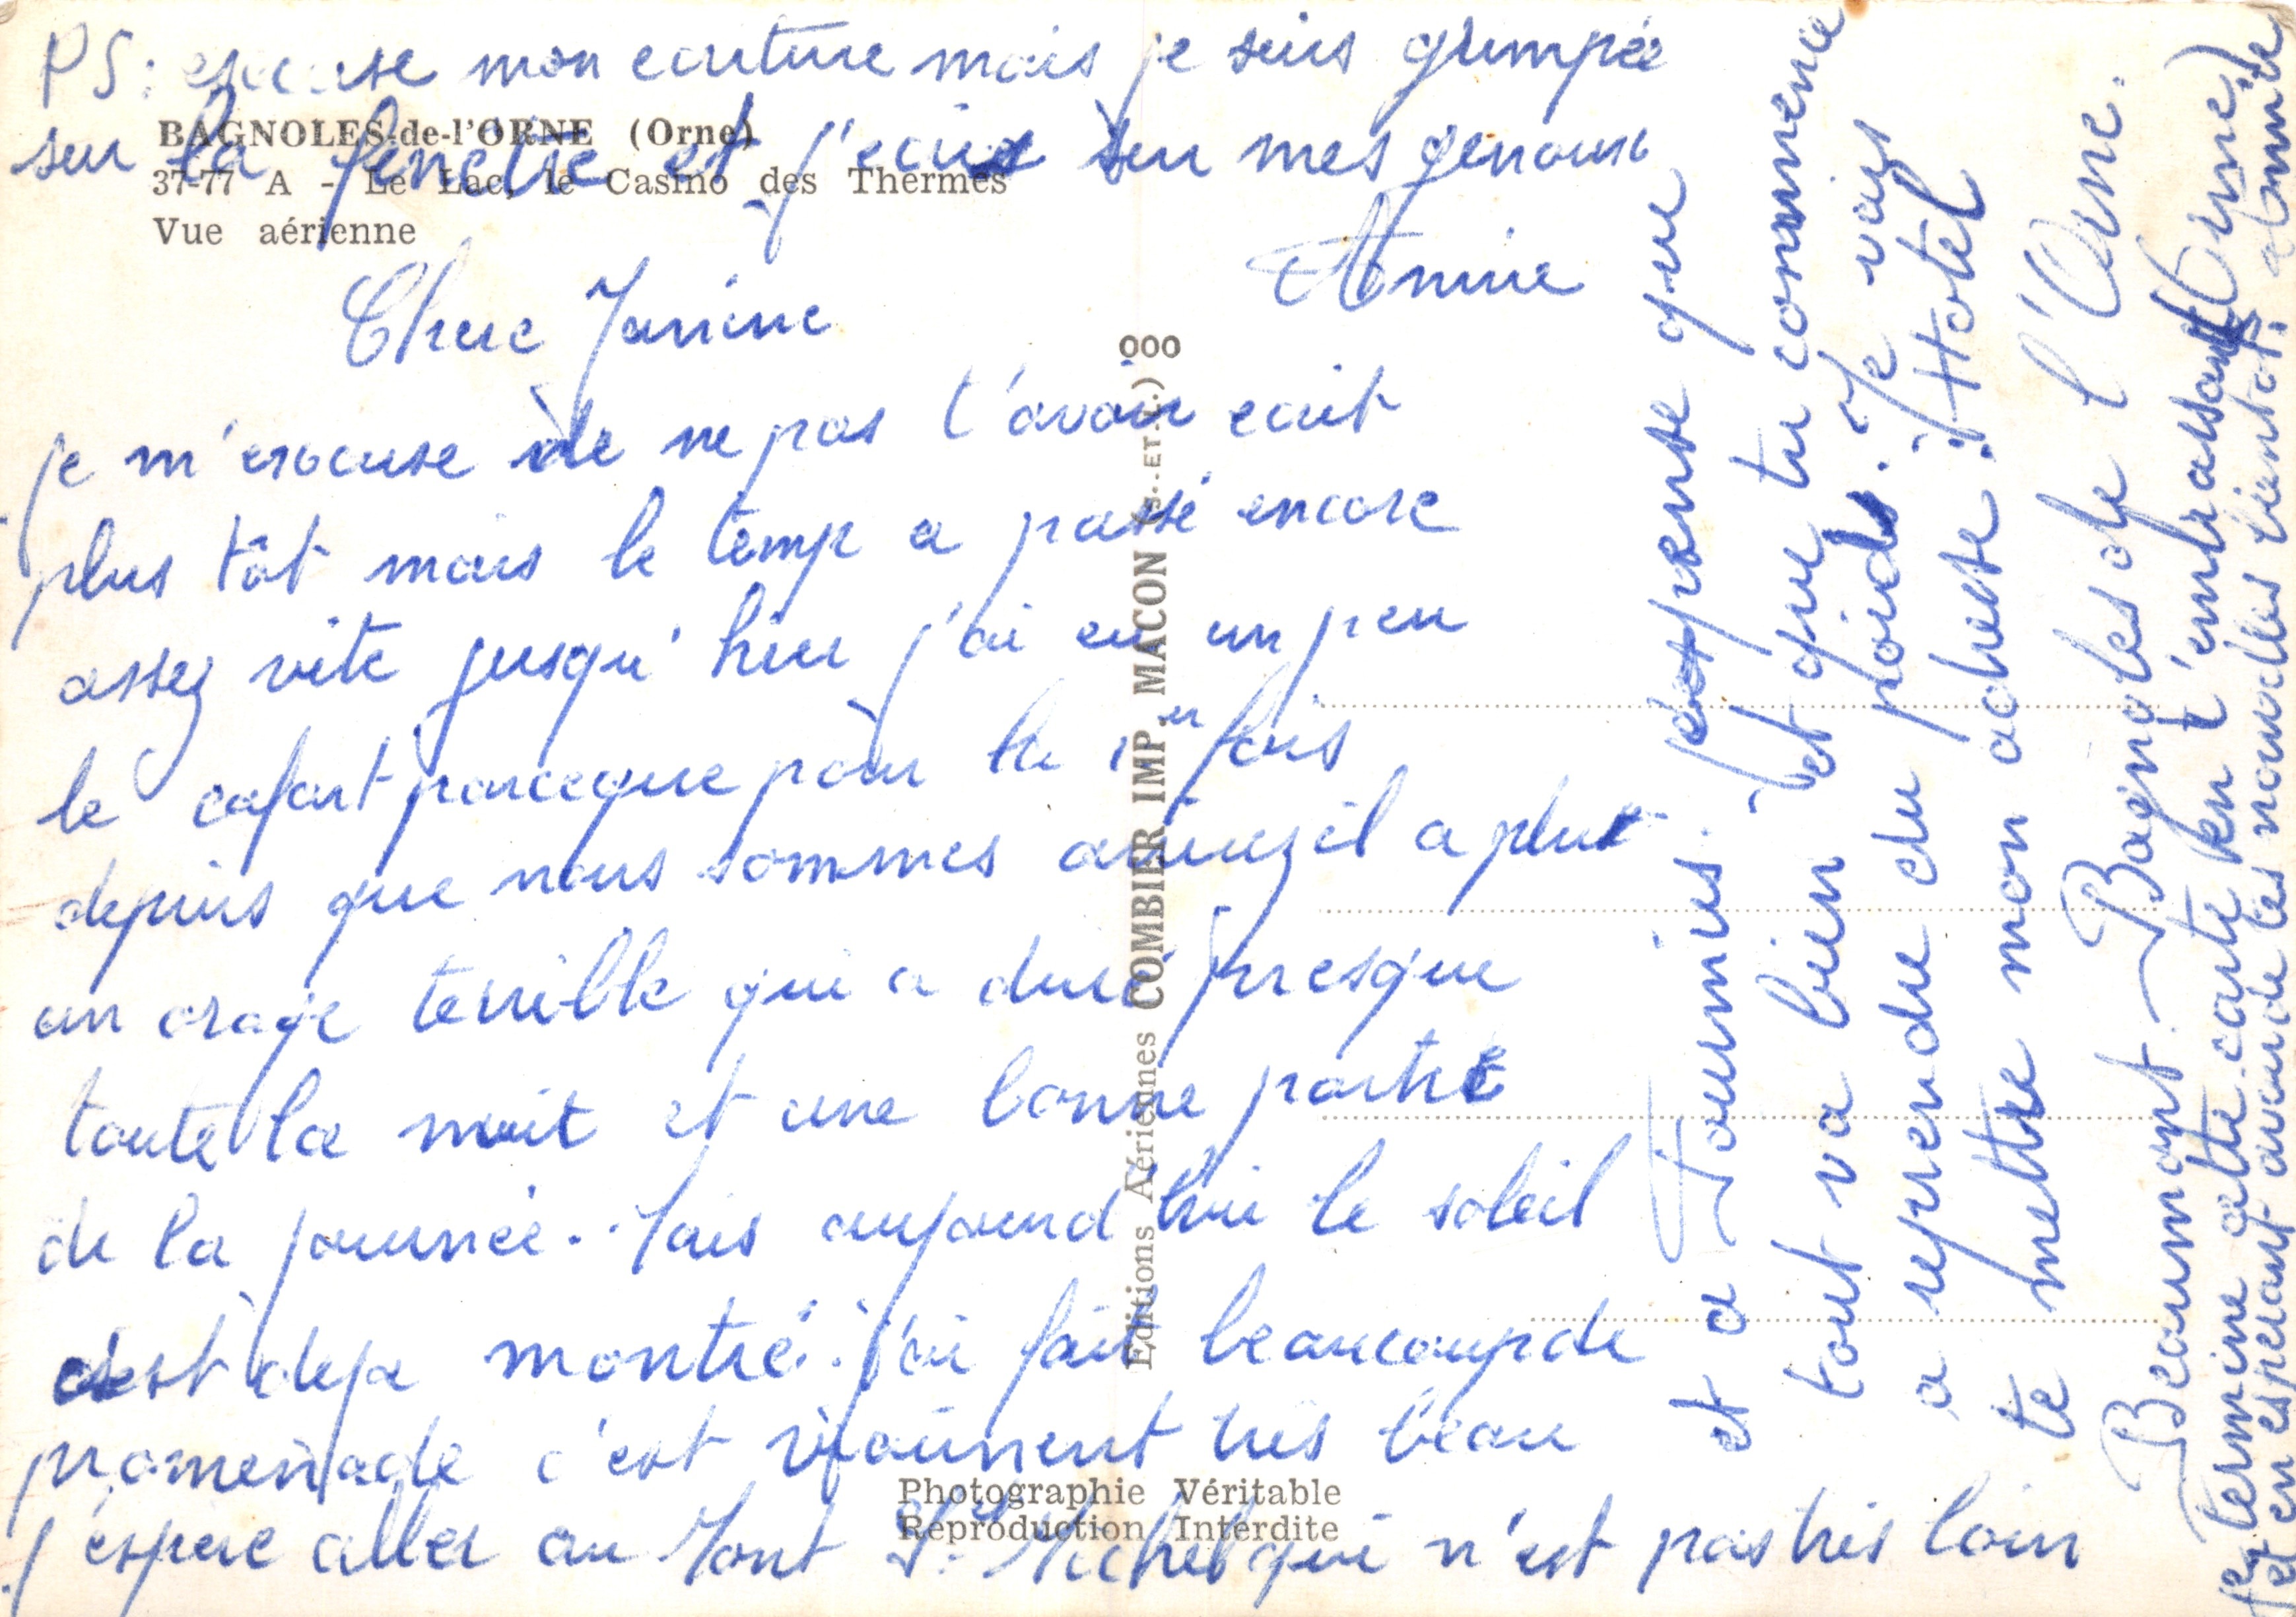 PS: excuse mon ecriture mais je suis grimpée
sur la fenetre et j'ecris sur mes genoux
Annie
BAGNOLES-de-l'ORNE (Orne)
37-77 A - Le Lac, le Casino des Thermes
Vue aérienne
Chere Janine
je m'excuse de ne pas t'avoir ecrit
plus tôt mais le temp a passé encore
assez vite jusqu'hier j'ai eu un peu
le cafart parceque pour la 1er fois
depuis que nous sommes arrivez il a plut
un orage terrible qui a duré presque
toute la nuit et une bonne partie
de la journée. Mais aujourd'hui le soleil
c'est deja montré. j'ai fait beaucoup de
promenade c'est vraiment très beau
j'espere aller au Mont St Michel qui n'est pas très loin
et a Fourmis. je pense que
tout va bien et que tu commence
a reprendre du poids. Je vais
te mettre mon adresse: Hotel
Beaumont. Bagnoles de l'Orne.
(Orne)
je termine cette carte en t'embrassant
et en esperant avoir de tes nouvelles bientot.
Editions Aériennes COMBIER IMP. MACON (S.. ET L.) 000
Photographie Véritable
Reproduction Interdite